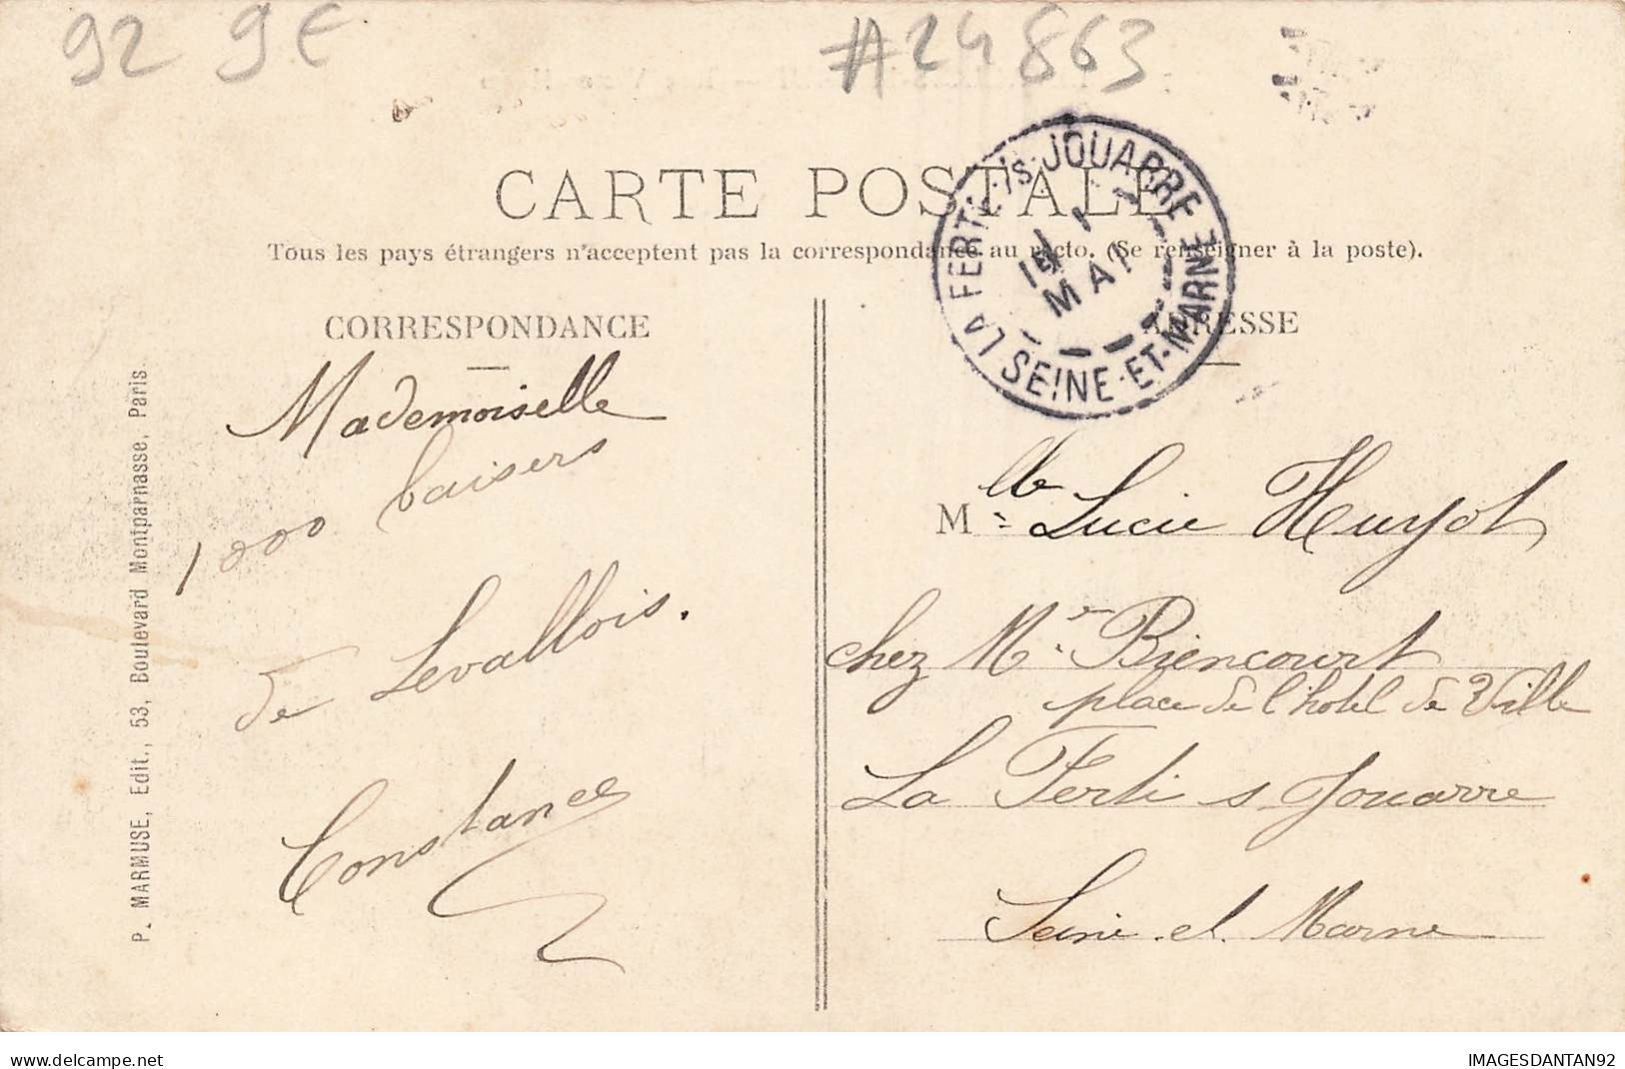 92 9€
#24863
CARTE POSTALE
Tous les pays étrangers n'acceptent pas la correspondance au recto. (Se renseigner à la poste).
LA FERTE-/s-JOUARRE
MAI
SEINE-ET-MARNE
CORRESPONDANCE
ADRESSE
Mademoiselle
1000 baisers
de Levallois.
Constance
Mlle Lucie Huyot
chez Mr. Biencourt
place de l'hotel de Ville
La Ferté s Jouarre
Seine et Marne
P. MARMUSE, Edit., 53, Boulevard Montparnasse, Paris
www.delcampe.net
IMAGESDANTAN92